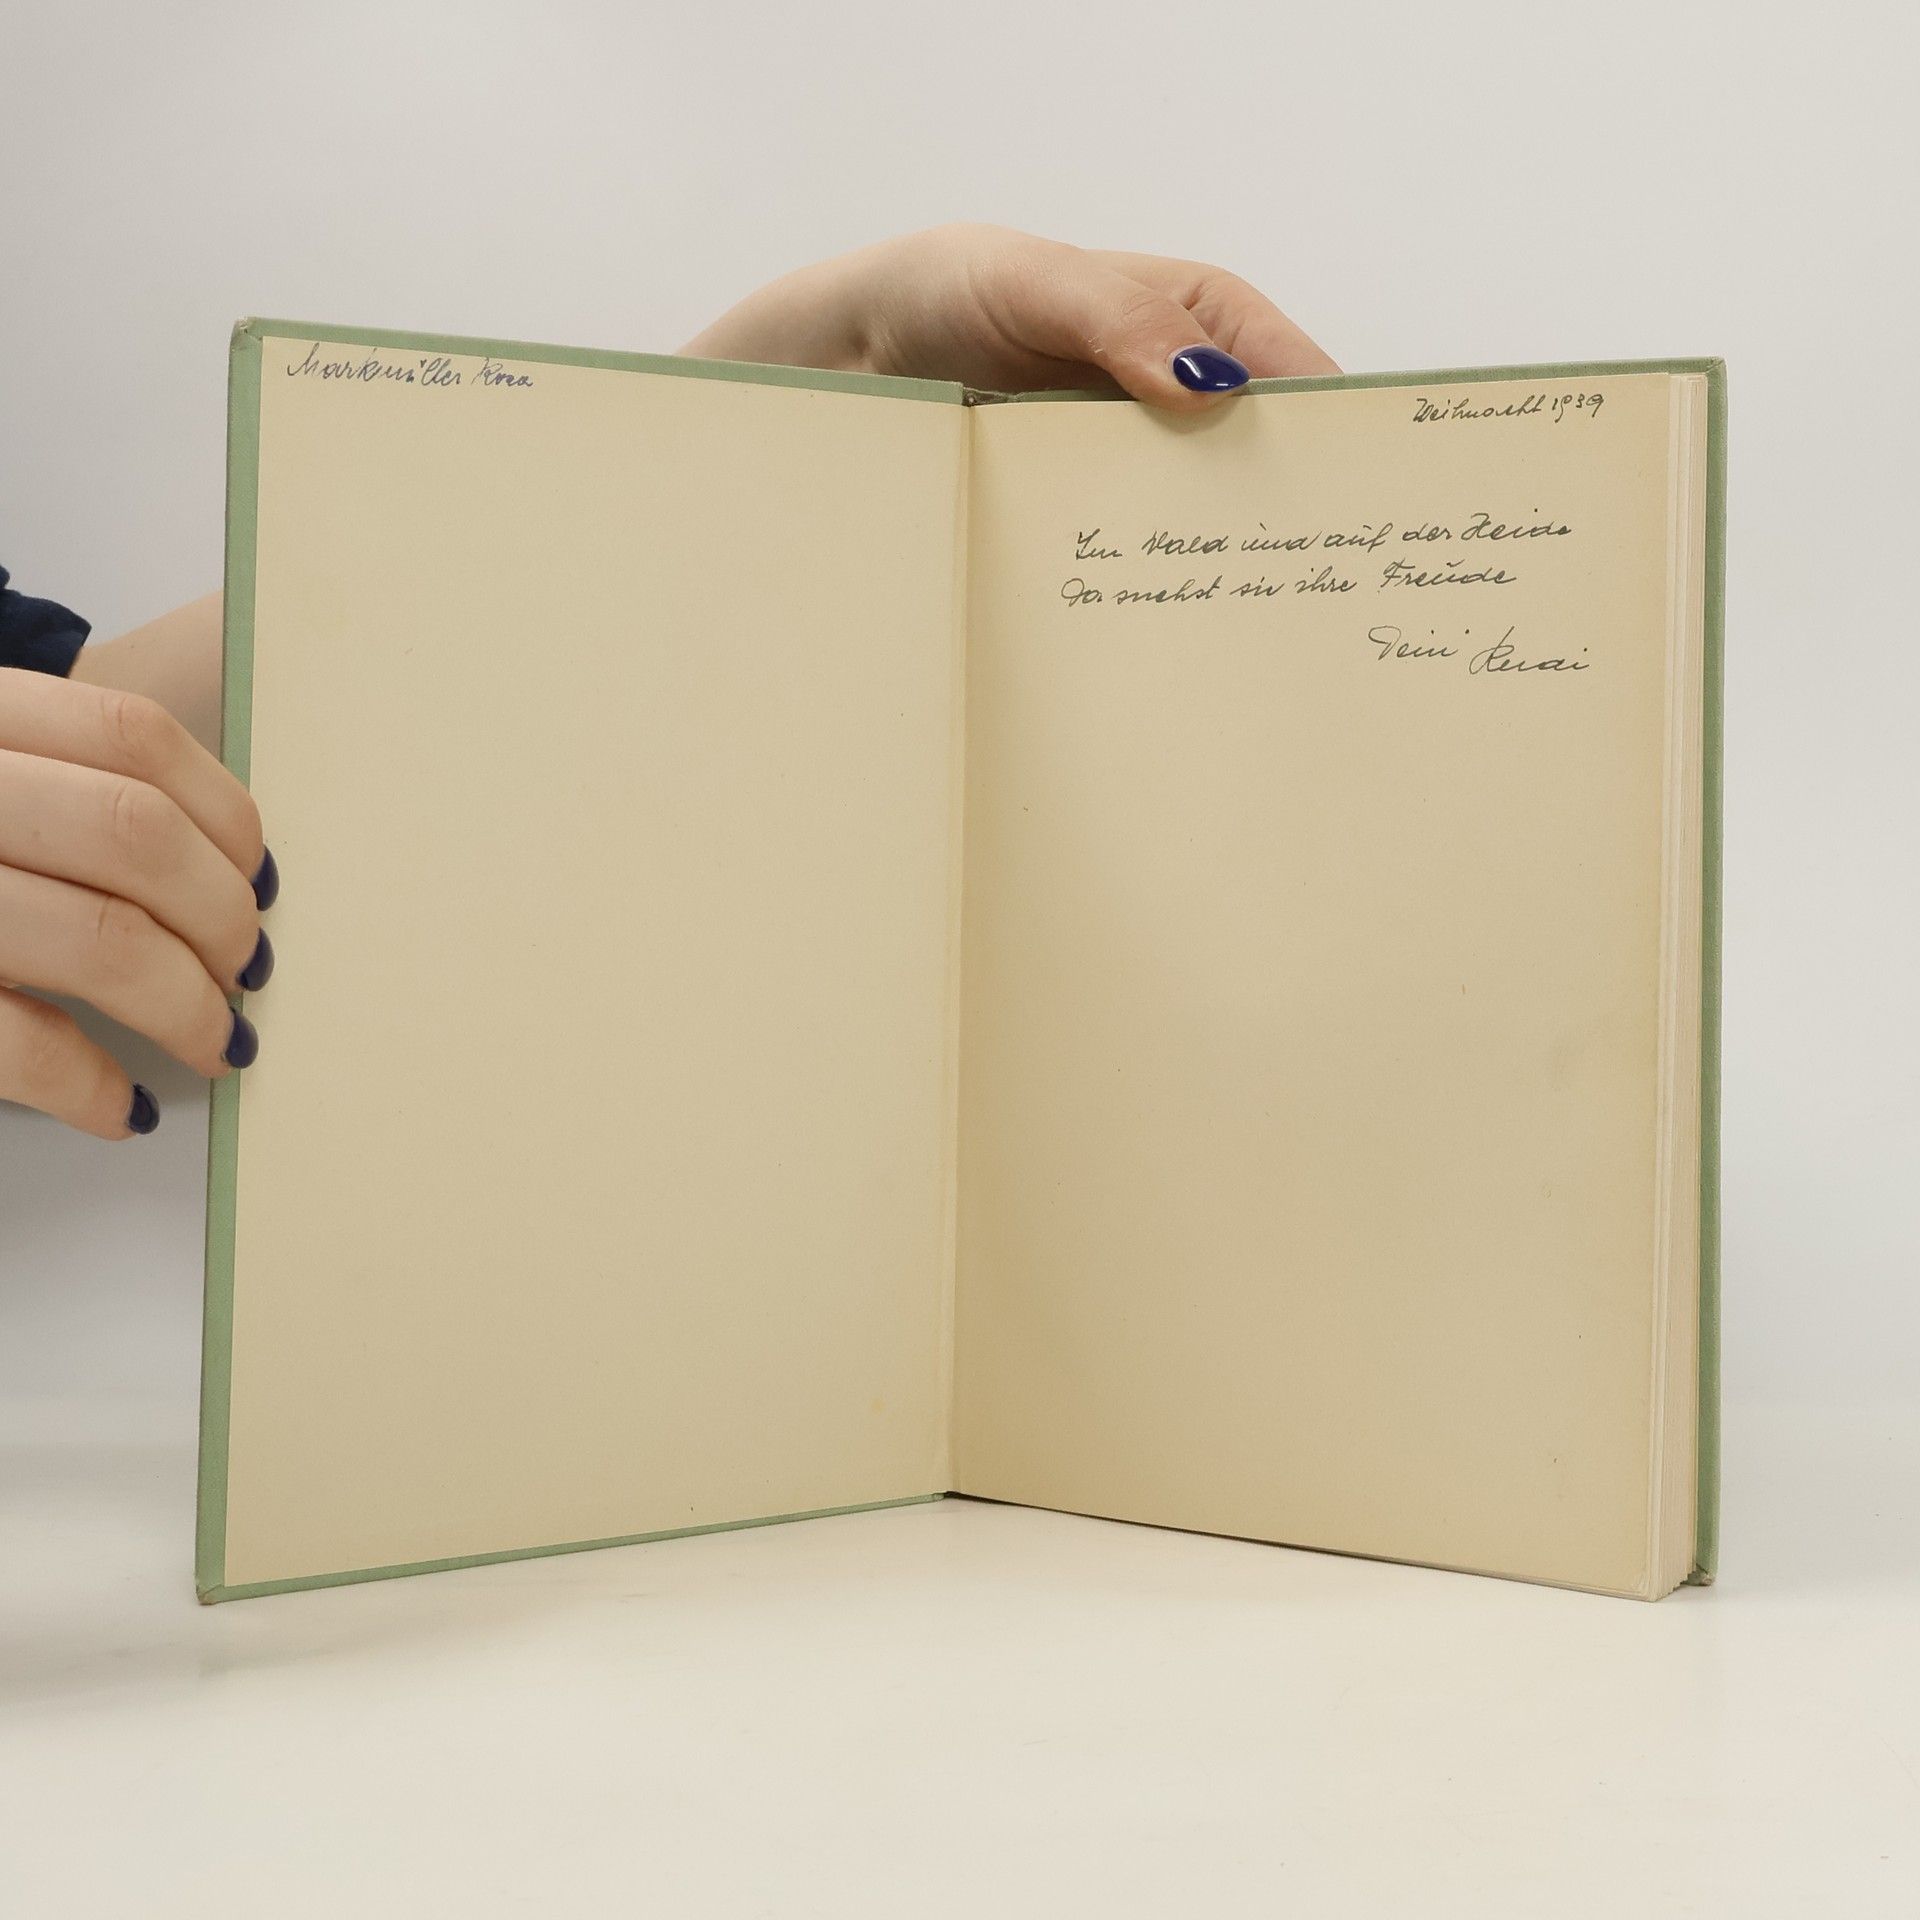 Markmüller Rosa
Weihnacht 1939
Im Wald und auf der Heide
Da suchst sie ihre Freude
Deini